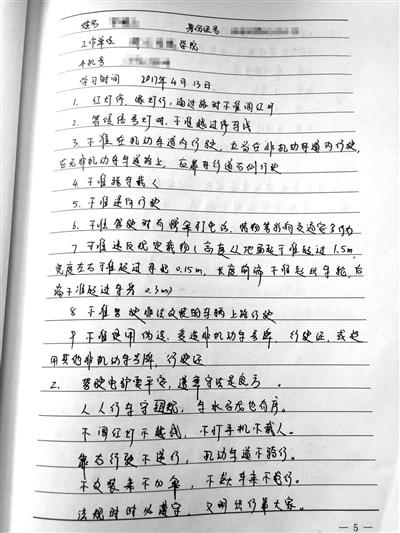 姓名
身份证号
工作单位 学院
手机号
学习时间 2017年4月13日
1. 红灯停、绿灯行,通过路时不准闯红灯
2. 等候信号灯时,不准越过停止线
3. 不准在机动车道内行驶,应当在非机动车道内行驶,
在无非机动车车道路上,应靠车行道右侧行驶
4. 不准骑车载人
5. 不准逆向行驶
6. 不准驾驶时打伞打电话、
7. 不准违反规定载物(高度从地面起不准超过1.5m,
宽度左右不准超过车把0.15m,长度前端不准超出车轮,后
端不准超过车身0.3m)
8. 不准驾驶非法改装的车辆上路行驶
9. 不准使用伪造、变造非机动车号牌、行驶证,或使
用其他非机动车号牌、行驶证
2. 驾驶电驴要平安,遵章守法是良方。
人人行车守规矩,车水马龙也有序。
不闯红灯不越线,不打手机不载人。
靠右行驶不逆行,机动车道不骑行。
不改装来不加伞,
法规时时必遵守,文明出行靠大家。
— 5 —